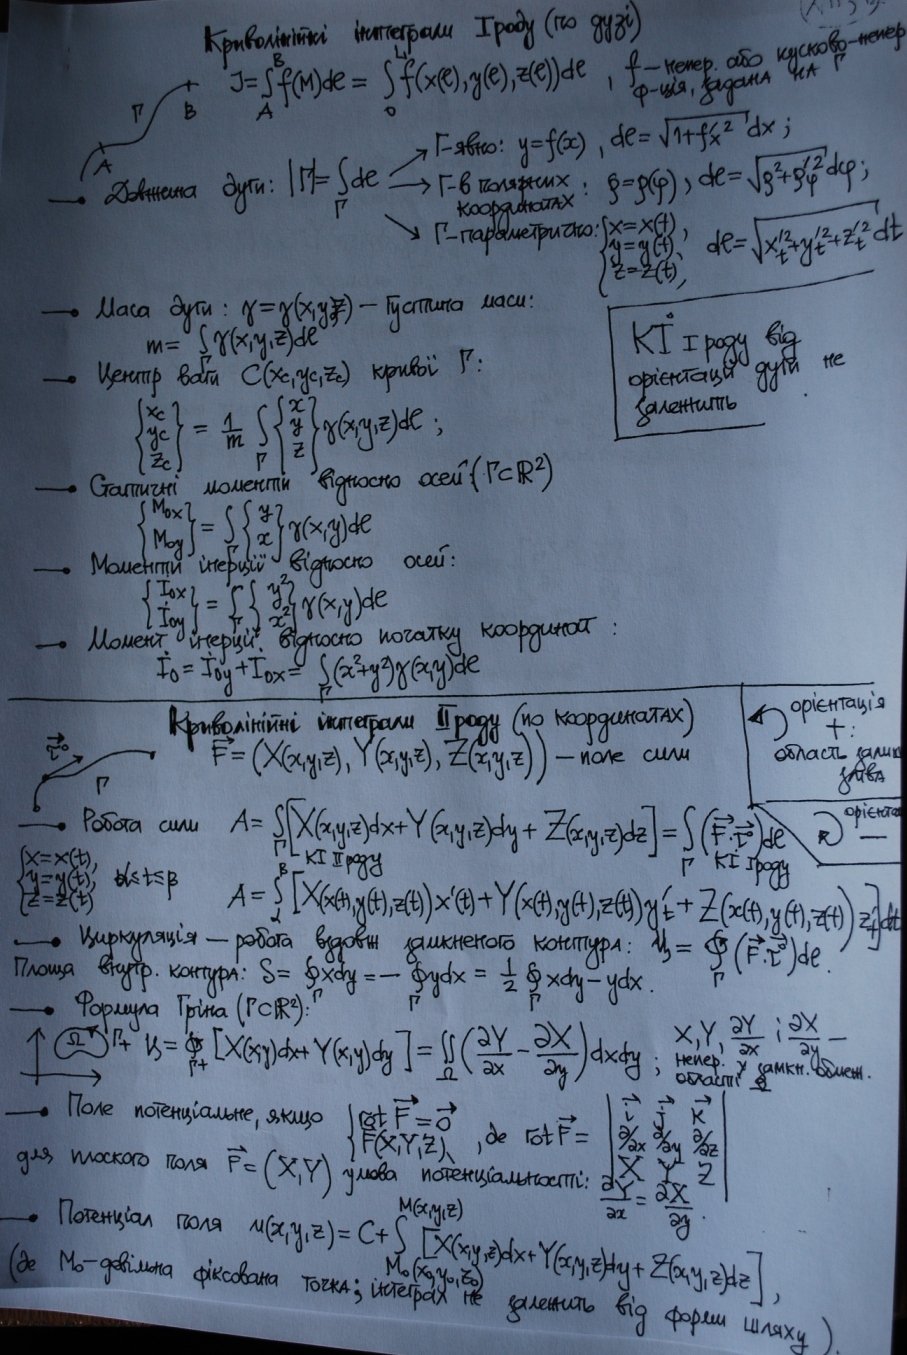 Криволінійні інтеграли I роду (по дузі)
J = ∫_A^B f(M)dℓ = ∫_0^L f(x(ℓ), y(ℓ), z(ℓ))dℓ , f – непер. або кусково-непер
ф-ція, задана на Γ
Γ
A
B
Довжина дуги: |Γ| = ∫_Γ dℓ
Γ-явно: y=f(x) , dℓ = √(1+f'x²) dx ;
Γ-в полярних координатах : ρ=ρ(φ) , dℓ = √(ρ²+ρ'φ²) dφ ;
Γ-параметрично: { x=x(t), y=y(t), z=z(t), dℓ = √(x't²+y't²+z't²) dt
Маса дуги : γ=γ(x,y,z) – густина маси:
m = ∫_Γ γ(x,y,z)dℓ
КІ I роду від
орієнтації дуги не
залежить .
Центр ваги C(xc,yc,zc) кривої Γ:
{xc yc zc} = 1/m ∫_Γ {x y z} γ(x,y,z)dℓ ;
Статичні моменти відносно осей (Γ⊂ℝ²)
{Mox Moy} = ∫_Γ {y x} γ(x,y)dℓ
Моменти інерції відносно осей:
{Iox Ioy} = ∫_Γ {y² x²} γ(x,y)dℓ
Момент інерції відносно початку координат :
Io = Ioy + Iox = ∫_Γ (x²+y²)γ(x,y)dℓ
Криволінійні інтеграли II роду (по координатах)
F⃗ = (X(x,y,z), Y(x,y,z), Z(x,y,z)) – поле сили
τ⃗°
Γ
орієнтація
+ :
область
зліва
–
Робота сили A = ∫_Γ [X(x,y,z)dx + Y(x,y,z)dy + Z(x,y,z)dz] = ∫_Γ (F⃗·τ⃗°)dℓ
– КІ II роду КІ I роду
{ x=x(t), y=y(t), z=z(t) α≤t≤β
A = ∫_α^β [X(x(t),y(t),z(t))x'(t) + Y(x(t),y(t),z(t))y't + Z(x(t),y(t),z(t))z't]dt
Циркуляція – робота вздовж замкненого контура: Ц = ∮_Γ (F⃗·τ⃗°)dℓ .
Площа внутр. контура: S = ∮_Γ xdy = – ∮_Γ ydx = 1/2 ∮_Γ xdy – ydx .
Формула Гріна (Γ⊂ℝ²):
Ω Γ+ Ц = ∮_Γ+ [X(x,y)dx + Y(x,y)dy] = ∬_Ω (∂Y/∂x – ∂X/∂y) dxdy ; X, Y, ∂Y/∂x і ∂X/∂y –
непер. у замкн. обмеж.
області Ω
Поле потенціальне, якщо { rot F⃗ = 0⃗ F⃗(X,Y,Z) , де rot F⃗ = | i⃗ j⃗ k⃗ ∂/∂x ∂/∂y ∂/∂z X Y Z |
для плоского поля F⃗ = (X,Y) умова потенціальності: ∂Y/∂x = ∂X/∂y .
Потенціал поля u(x,y,z) = C + ∫_{M₀(x₀,y₀,z₀)}^{M(x,y,z)} [X(x,y,z)dx + Y(x,y,z)dy + Z(x,y,z)dz] ,
(де M₀ – довільна фіксована точка; інтеграл не залежить від форми шляху ).